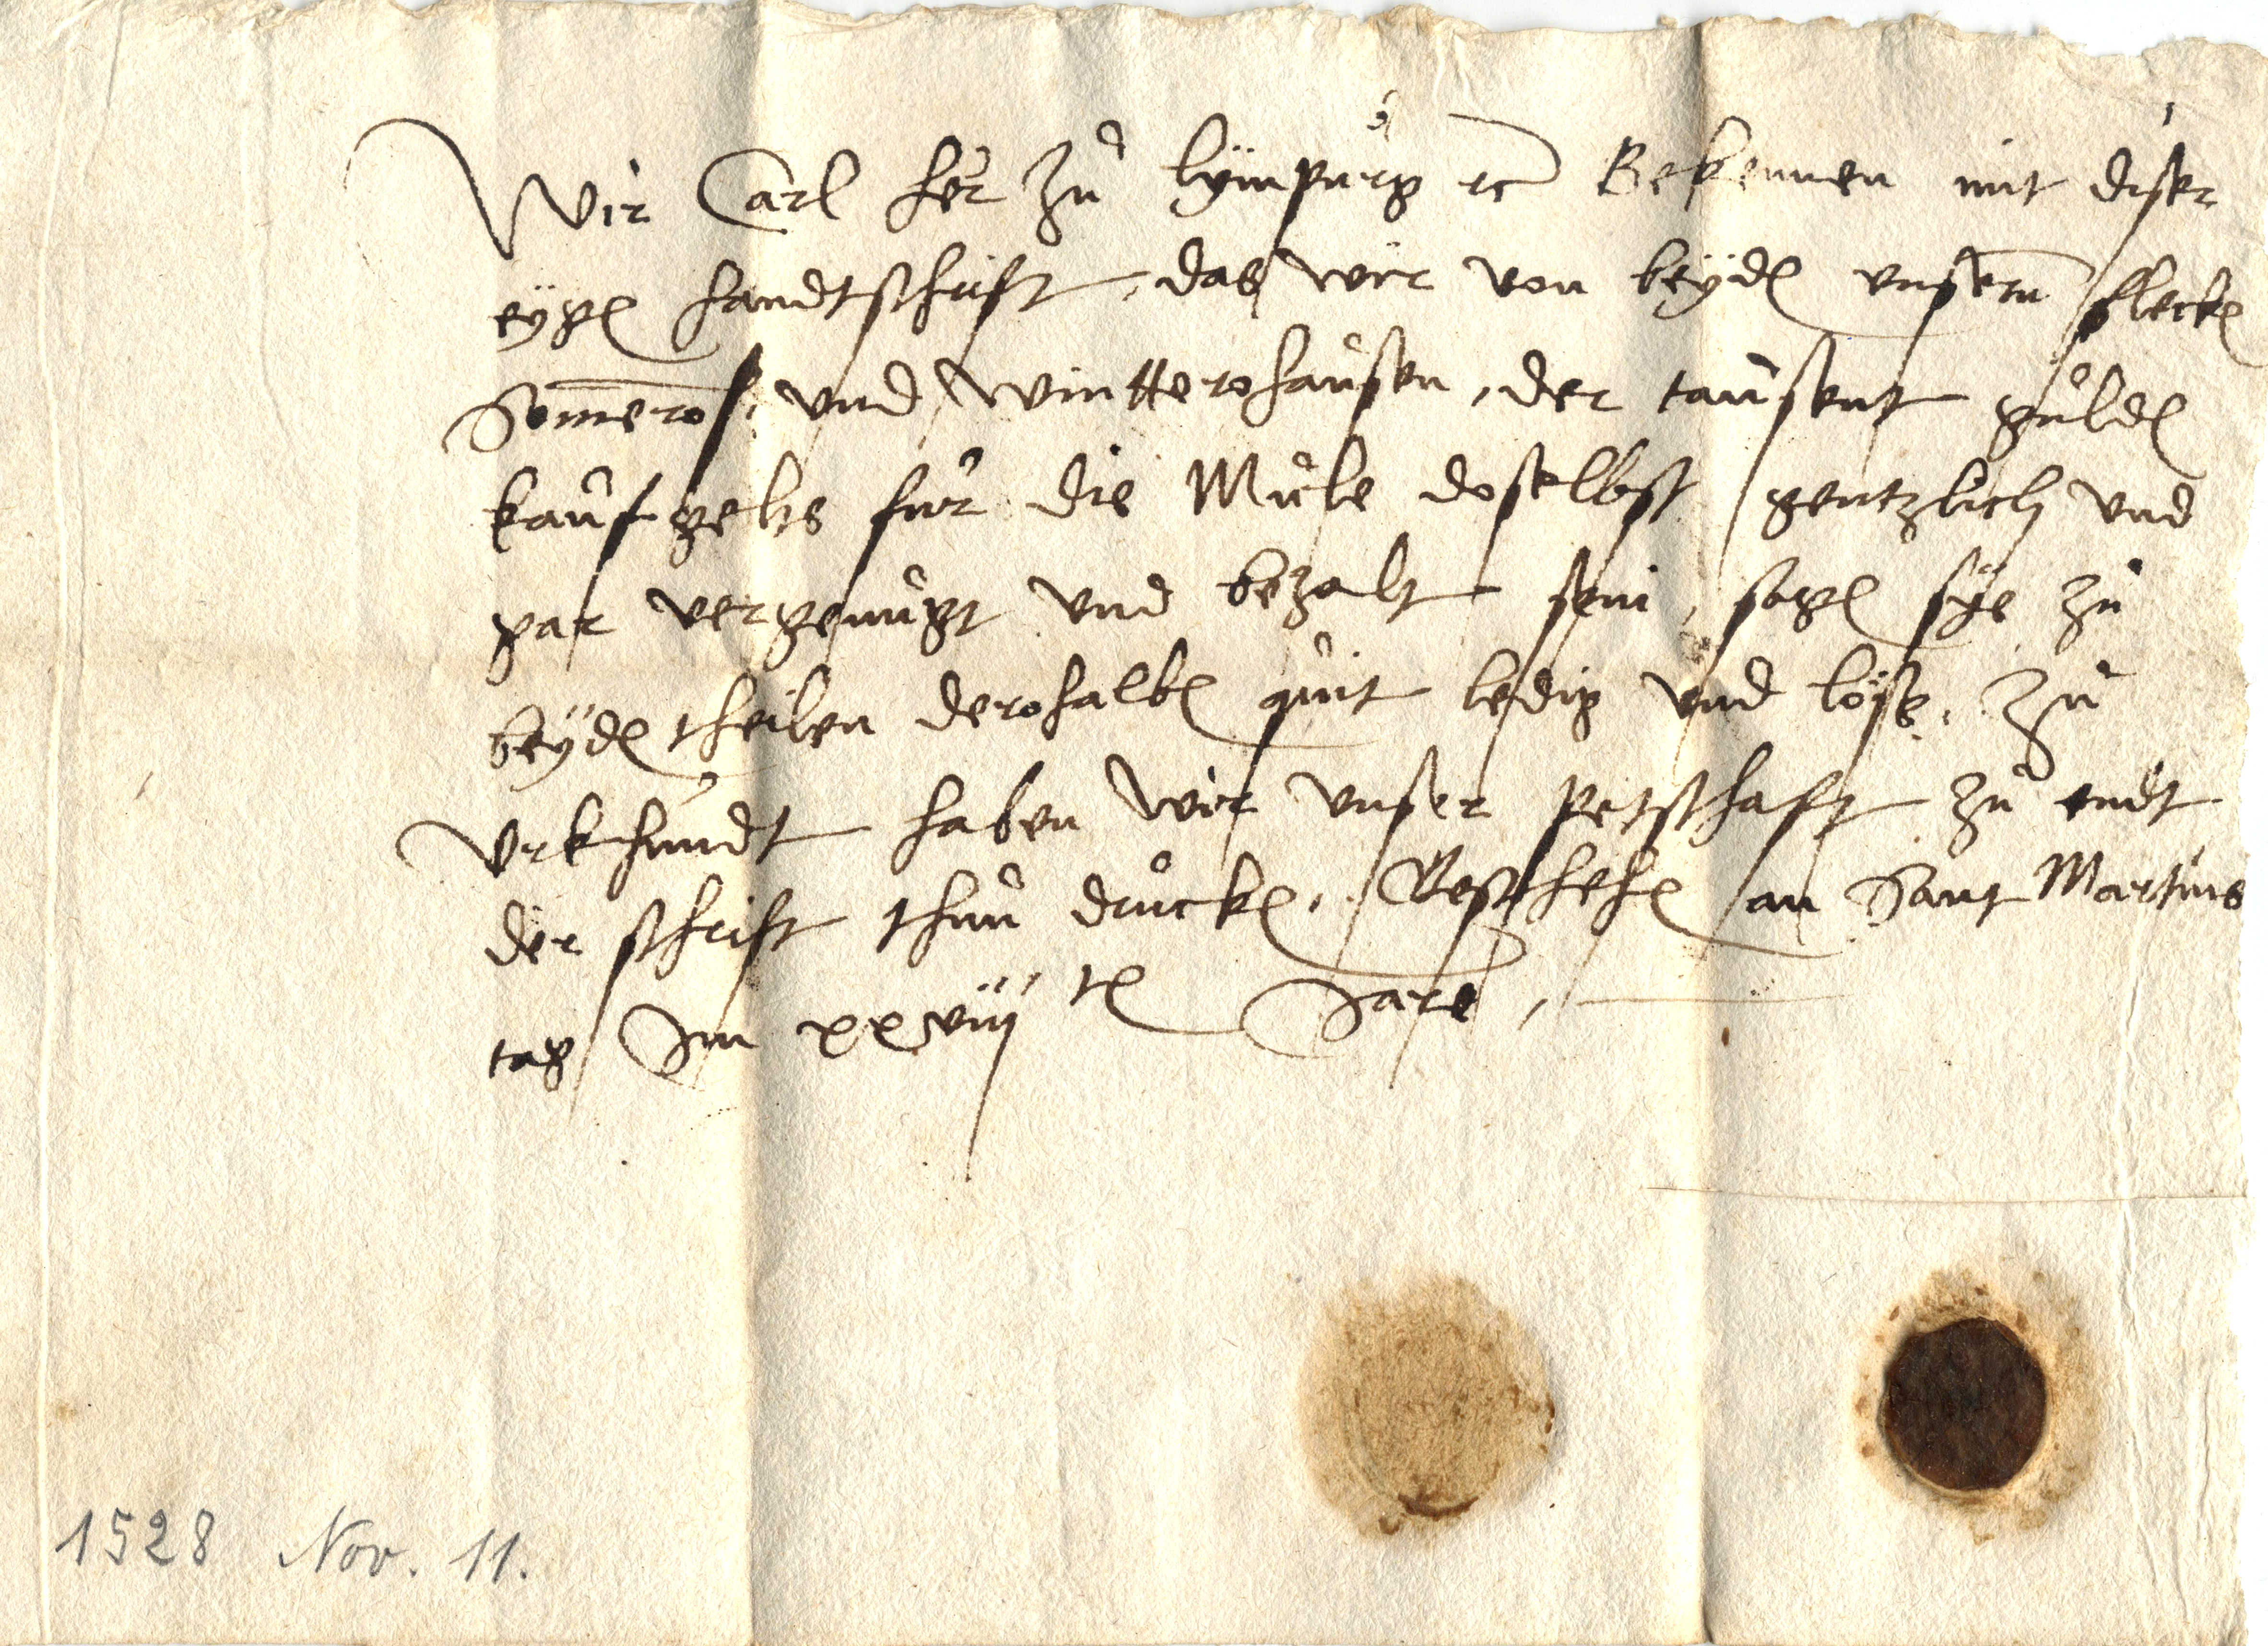 Wir Carl her zu lympurg rc Bekennen mit diser
eygen handtschrift, das wir von beyden unsern flecken
Somersh. und Winttershausen, der tausent gulden
kaufgelts fur die Mule doselbst gentzlich und
gar vergenugt und bezalt sein, sagen sye zu
beyden theilen dershalben quit ledig und loß. Zu
Urkhundt haben wir unser petschaft zu endt
der schrift thun drucken. Geschehen an Sant Martins
tag Im xxviij ten Jare,
1528 Nov. 11.